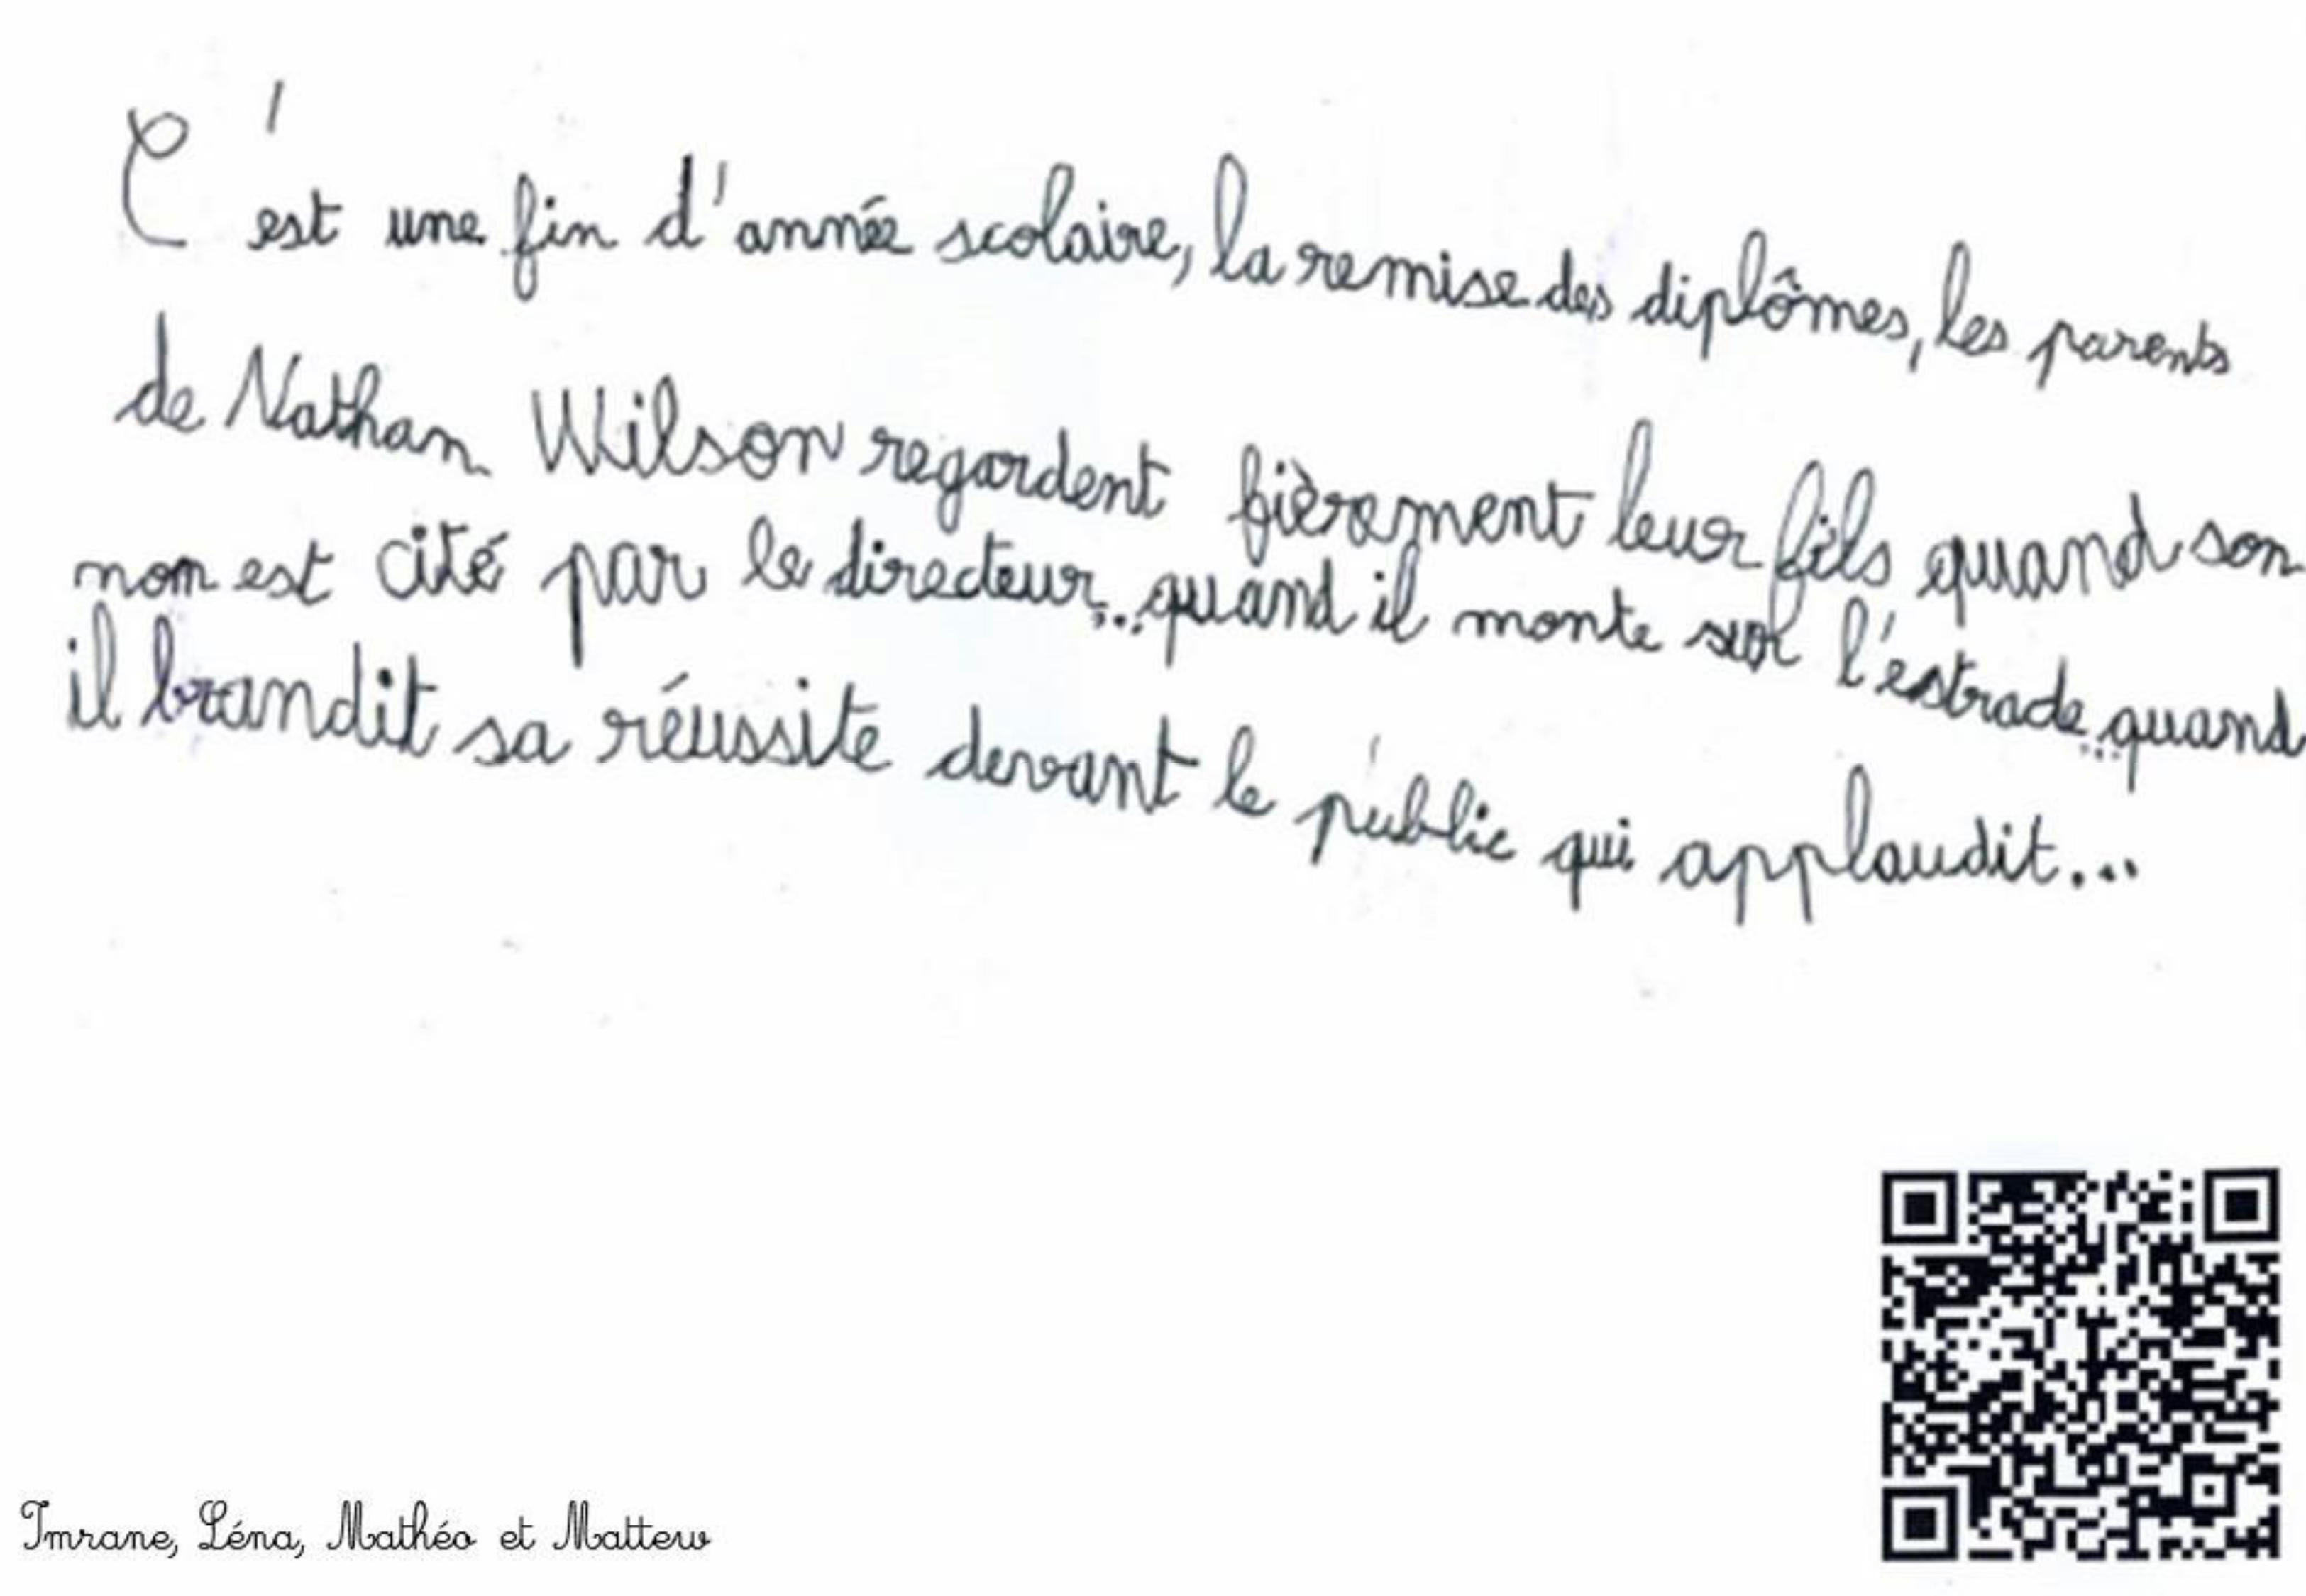 C'est une fin d'année scolaire, la remise des diplômes, les parents
de Nathan Wilson regardent fièrement leur fils quand son
nom est cité par le directeur... quand il monte sur l'estrade... quand
il brandit sa réussite devant le public qui applaudit...
Imrane, Léna, Mathéo et Mattew